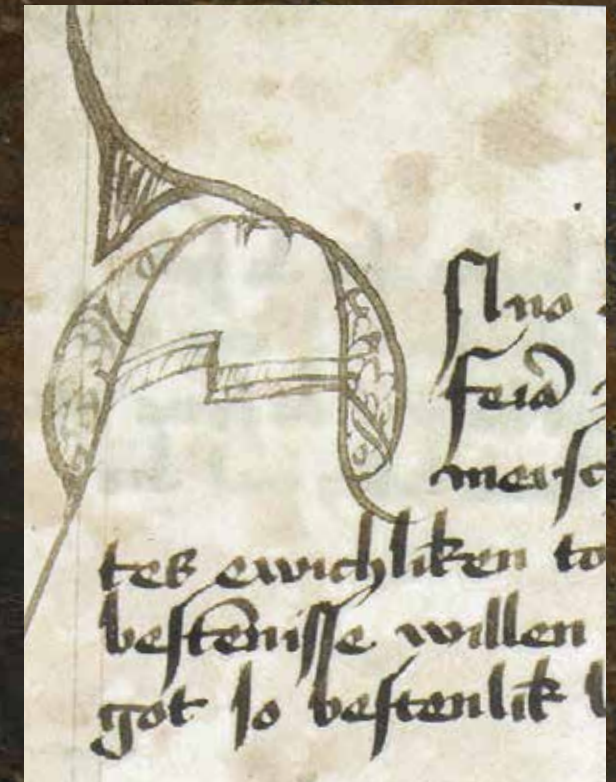 A
Anno
feria
mensc
tes ewichliken to
vestēnisse willen
got so vestenlik